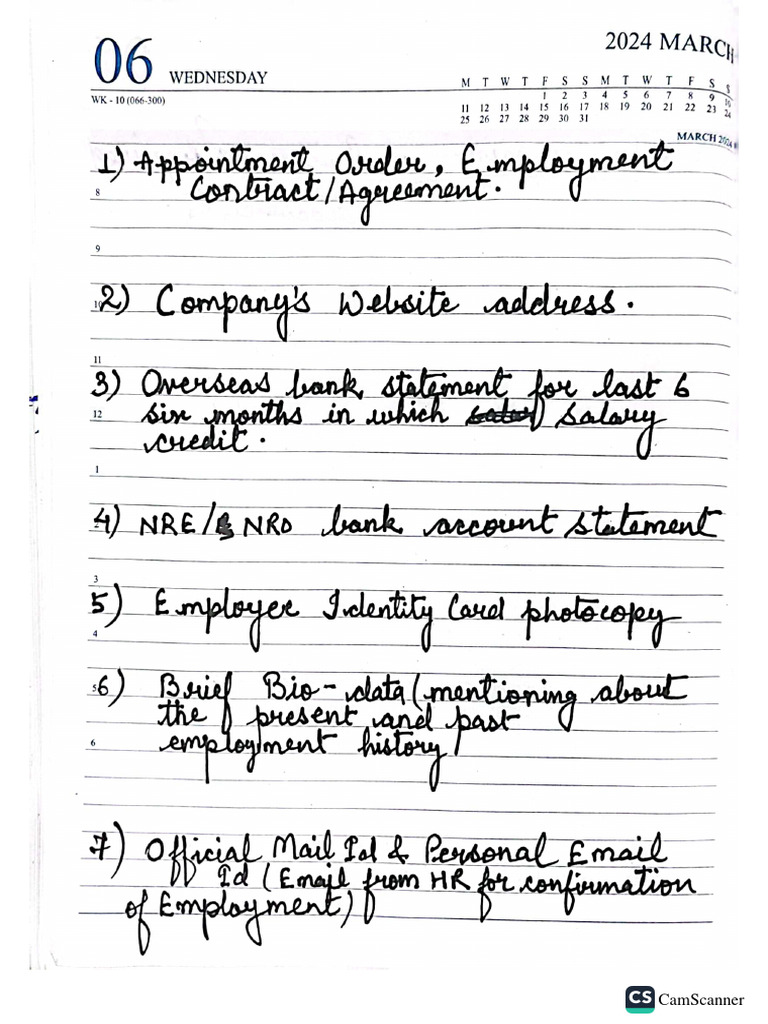 06 WEDNESDAY
2024 MARCH
WK - 10 (066-300)
M T W T F S S M T W T F S S
1 2 3 4 5 6 7 8 9 10
11 12 13 14 15 16 17 18 19 20 21 22 23 24
25 26 27 28 29 30 31
MARCH 2024
1) Appointment Order, Employment
8 Contract/Agreement.
9
10
2) Company's Website address.
11
3) Overseas bank statement for last 6
12 six months in which salary
credit.
1
4) NRE/ NRO bank account statement
3
5) Employer Identity Card photocopy
4
5
6) Brief Bio-data (mentioning about
the present and past
6 employment history)
7) Official Mail Id & Personal Email
Id (Email from HR for confirmation
of Employment)
CS CamScanner